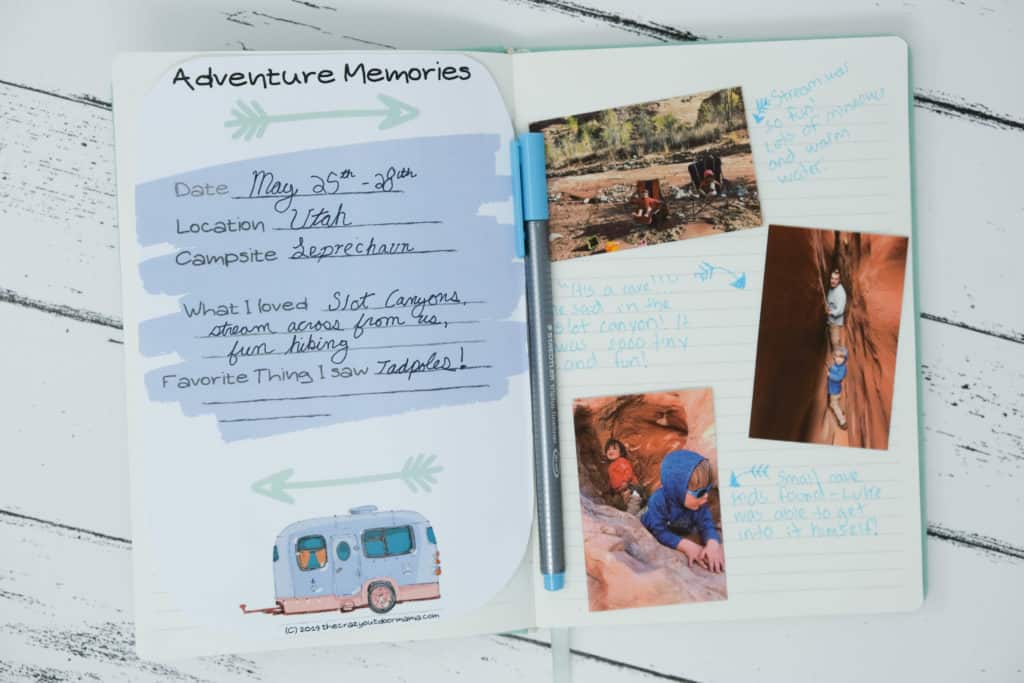 Adventure Memories
Date May 25th - 28th
Location Utah
Campsite Leprechaun
What I loved Slot Canyons,
stream across from us,
fun hiking
Favorite Thing I saw Tadpoles!
(C) 2019 thecrazyoutdoormama.com
STAEDTLER triplus fineliner
Stream was
so fun!
Lots of minnows
and warm
water.
"It's a cave!"
he said in the
slot canyon! It
was sooo tiny
and fun!
Small cave
kids found - Luke
was able to get
into it himself!